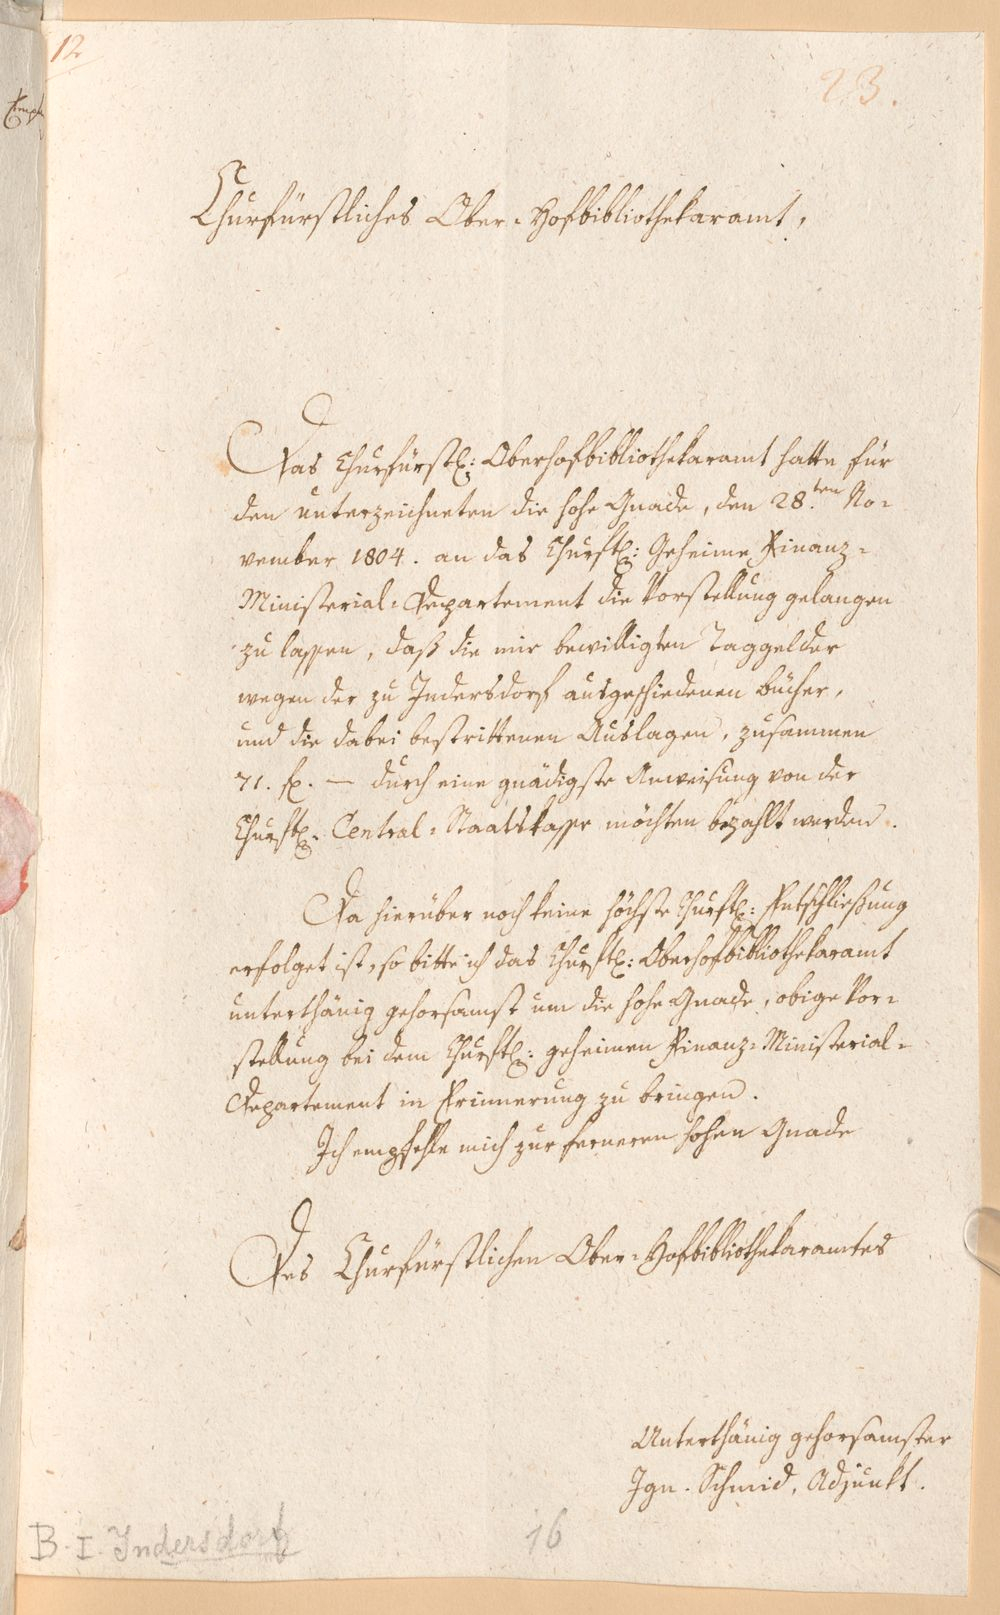 12
23.
Churfürstliches Ober-Hofbibliothekaramt,
Das Churfürstl: Oberhofbibliothekaramt hatte für
den unterzeichneten die hohe Gnade, den 28.ten No-
vember 1804. an das Churftl: Geheime Finanz-
Ministerial-Departement die Vorstellung gelangen
zu lassen, daß die mir bewilligten Taggelder
wegen der zu Indersdorf ausgeschiedenen Bücher,
und die dabei bestrittenen Auslagen, zusammen
71. fl. — durch eine gnädigste Anweisung von der
Churftl: Central-Staatskasse möchten bezahlt werden.
Da hierüber noch keine höchste Churftl: Entschließung
erfolget ist, so bitte ich das Churftl: Oberhofbibliothekaramt
unterthänig gehorsamst um die hohe Gnade, obige Vor-
stellung bei dem Churftl: geheimen Finanz-Ministerial-
Departement in Erinnerung zu bringen.
Ich empfehle mich zur ferneren hohen Gnade
Des Churfürstlichen Ober-Hofbibliothekaramtes
Unterthänig gehorsamster
Ign. Schmid, Adjunkt.
B. I. Indersdorf
16